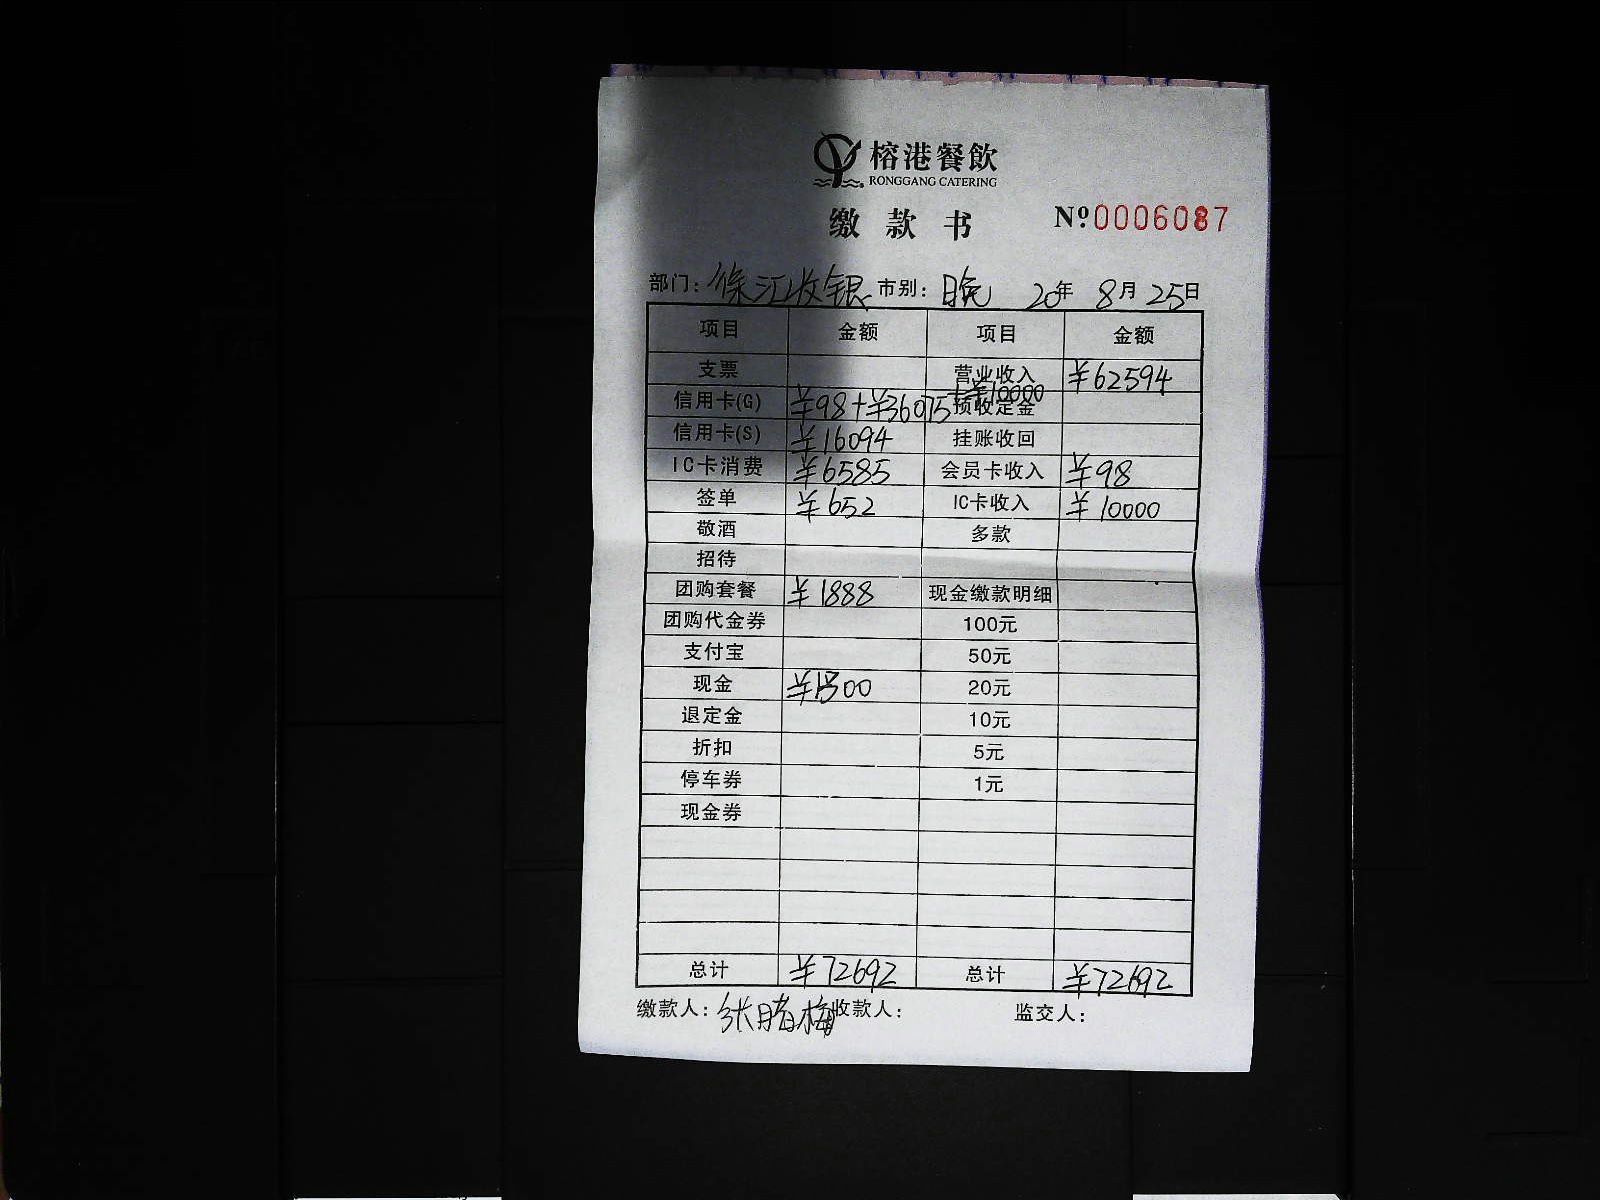 榕港餐飲
RONGGANG CATERING
缴款书 Nº0006087
部门: 徐汇收银 市别: 晚 20年 8月 25日
项目 金额 项目 金额
支票 营业收入 ¥62594
信用卡(G) ¥98+¥36075+¥10000 预收定金
信用卡(S) ¥16094 挂账收回
IC卡消费 ¥6585 会员卡收入 ¥98
签单 ¥652 IC卡收入 ¥10000
敬酒 多款
招待
团购套餐 ¥1888 现金缴款明细
团购代金券 100元
支付宝 50元
现金 ¥1300 20元
退定金 10元
折扣 5元
停车券 1元
现金券
总计 ¥72692 总计 ¥72692
缴款人: 张腊梅 收款人: 监交人: